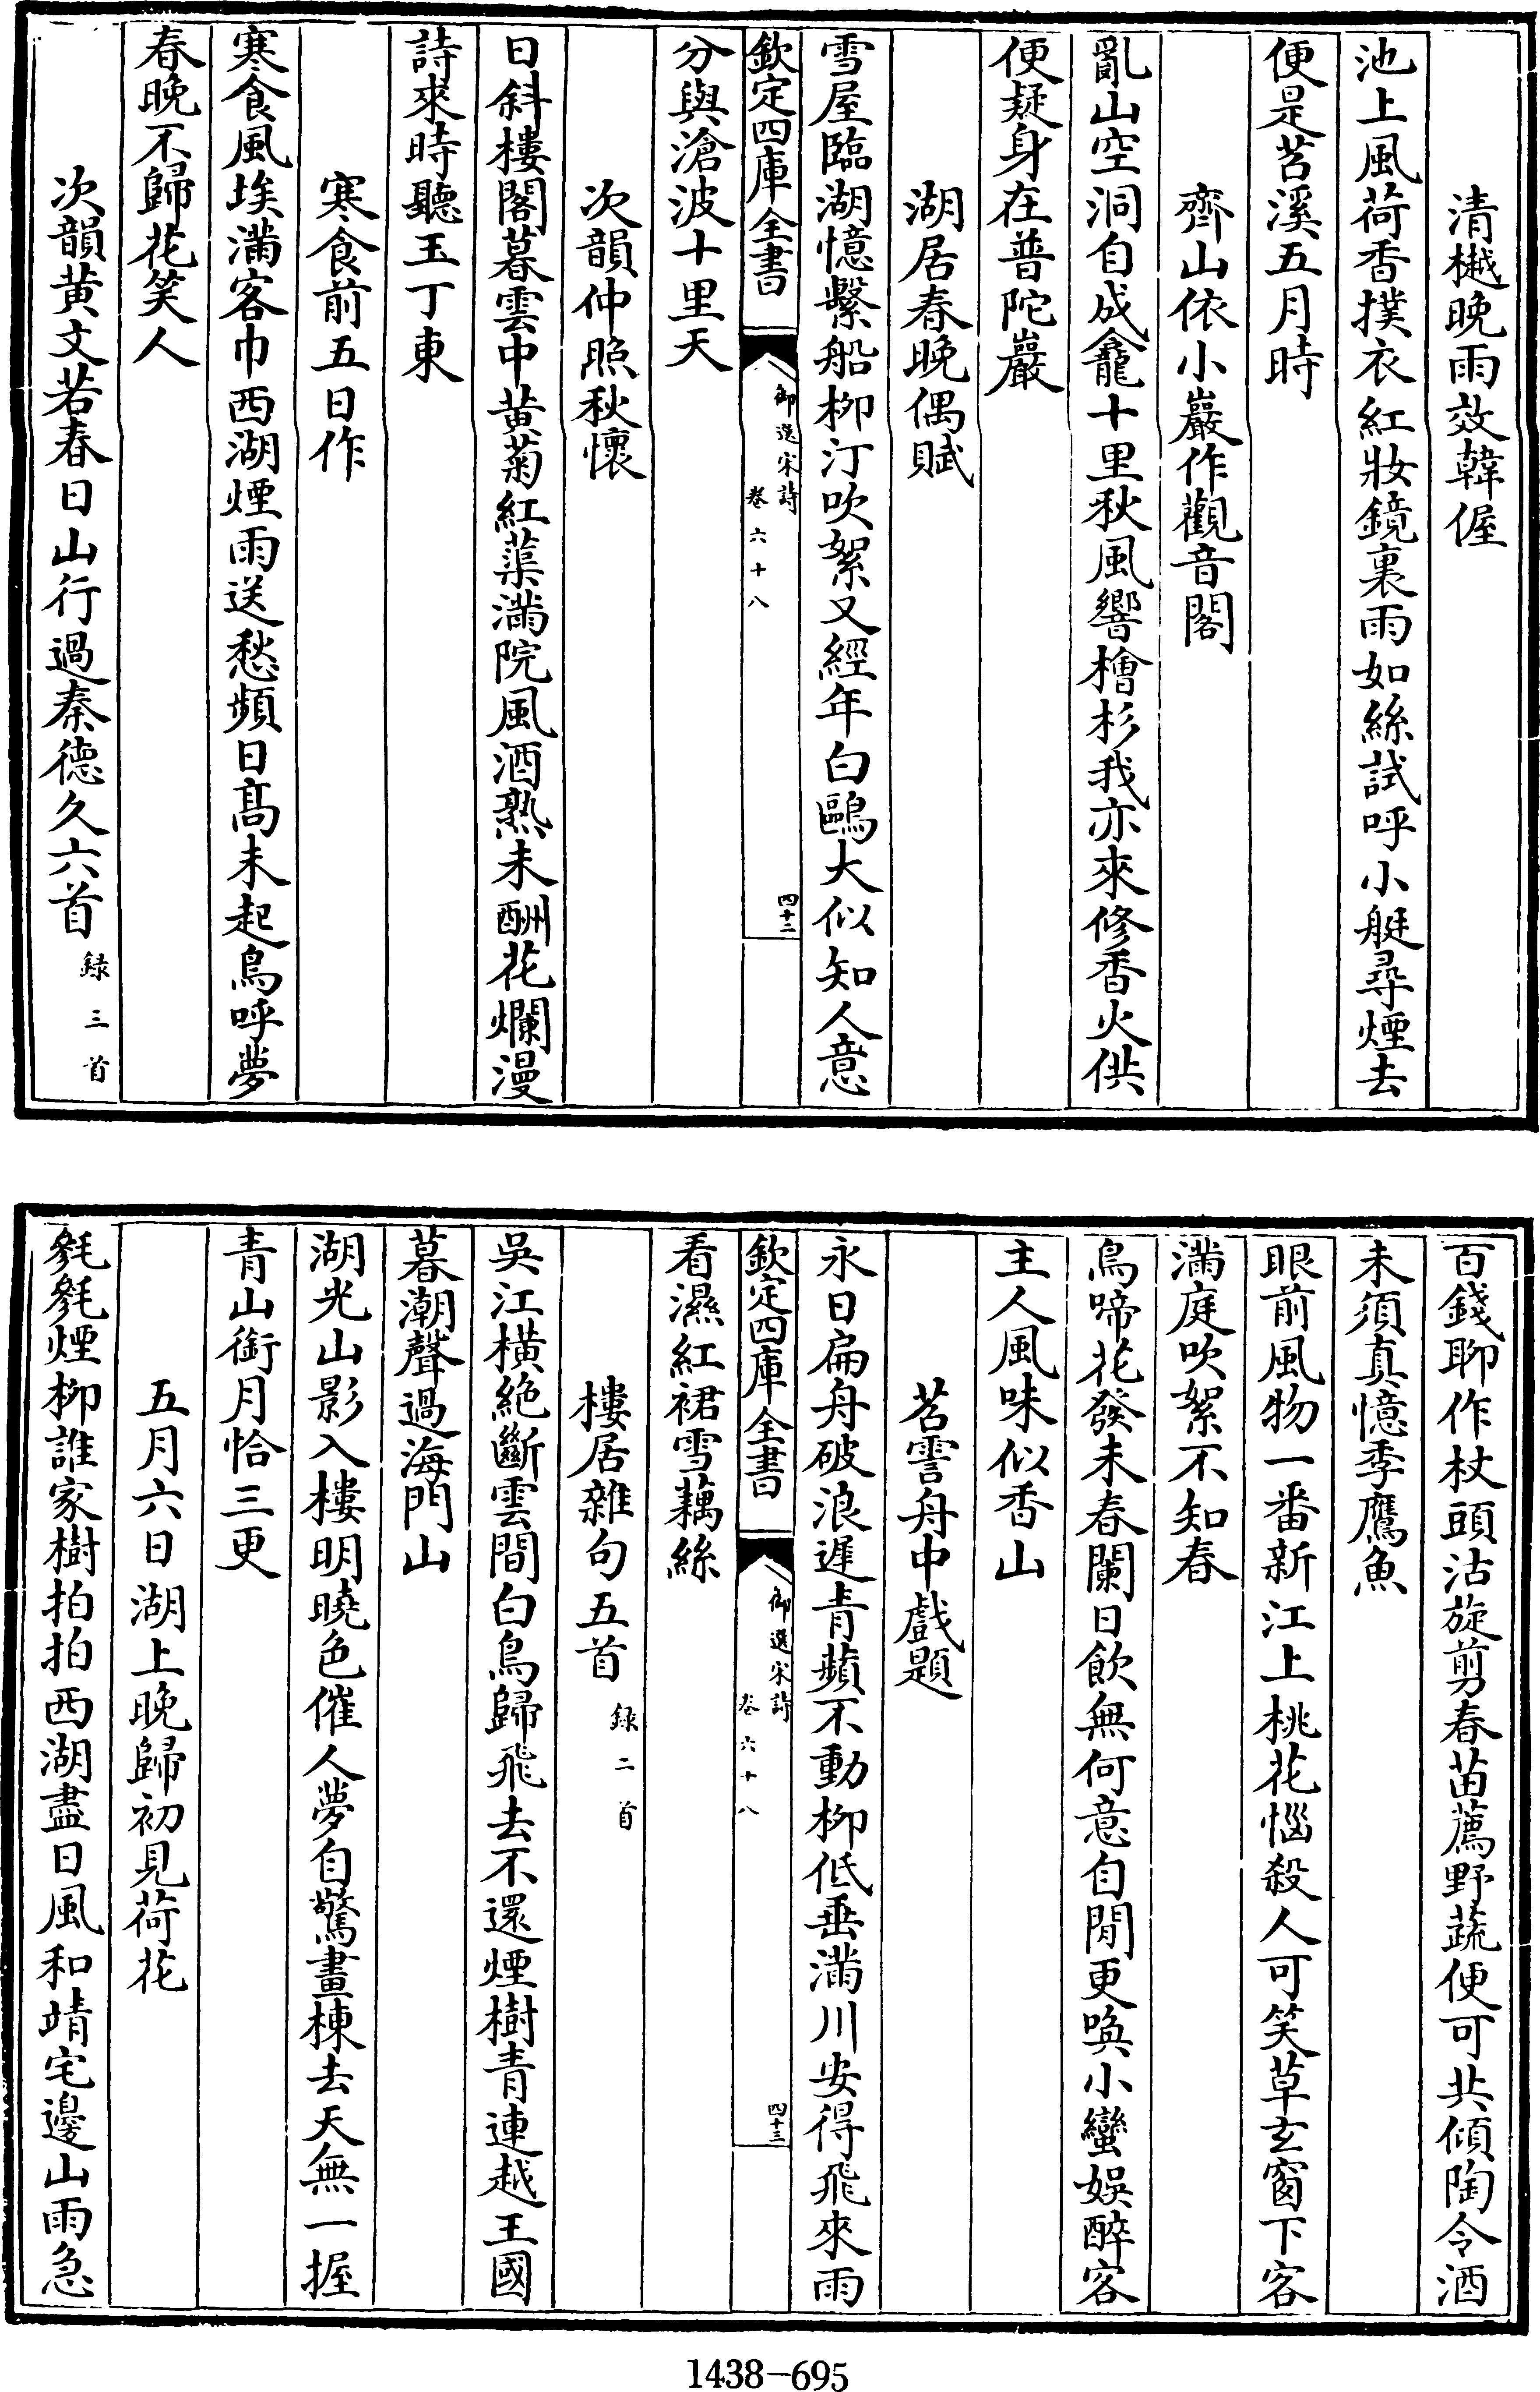 清樾晚雨效韓偓
池上風荷香撲衣紅妝鏡裏雨如絲試呼小艇尋煙去
便是苕溪五月時
齊山依小巖作觀音閣
亂山空洞自成龕十里秋風響檜杉我亦來修香火供
便疑身在普陀巖
湖居春晚偶賦
雪屋臨湖憶繫船柳汀吹絮又經年白鷗大似知人意
欽定四庫全書
御選宋詩
卷六十八
四十二
分與滄波十里天
次韻仲熙秋懷
日斜樓閣暮雲中黄菊紅蕖滿院風酒熟未酬花爛漫
詩來時聽玉丁東
寒食前五日作
寒食風埃滿客巾西湖煙雨送愁頻日髙未起鳥呼夢
春晚不歸花笑人
次韻黄文若春日山行過秦德久六首
録三首
百錢聊作杖頭沽旋剪春苗薦野蔬便可共傾陶令酒
未須真憶季鷹魚
眼前風物一番新江上桃花惱殺人可笑草玄窗下客
滿庭吹絮不知春
鳥啼花發未春闌日飲無何意自閒更喚小蠻娛醉客
主人風味似香山
苕霅舟中戲題
永日扁舟破浪遲青蘋不動柳低垂滿川安得飛來雨
欽定四庫全書
御選宋詩
卷六十八
四十三
看濕紅裙雪藕絲
樓居雜句五首
録二首
吳江橫絶斷雲間白鳥歸飛去不還煙樹青連越王國
暮潮聲過海門山
湖光山影入樓明曉色催人夢自驚畫棟去天無一握
青山銜月恰三更
五月六日湖上晚歸初見荷花
毿毿煙柳誰家樹拍拍西湖盡日風和靖宅邊山雨急
1438-695